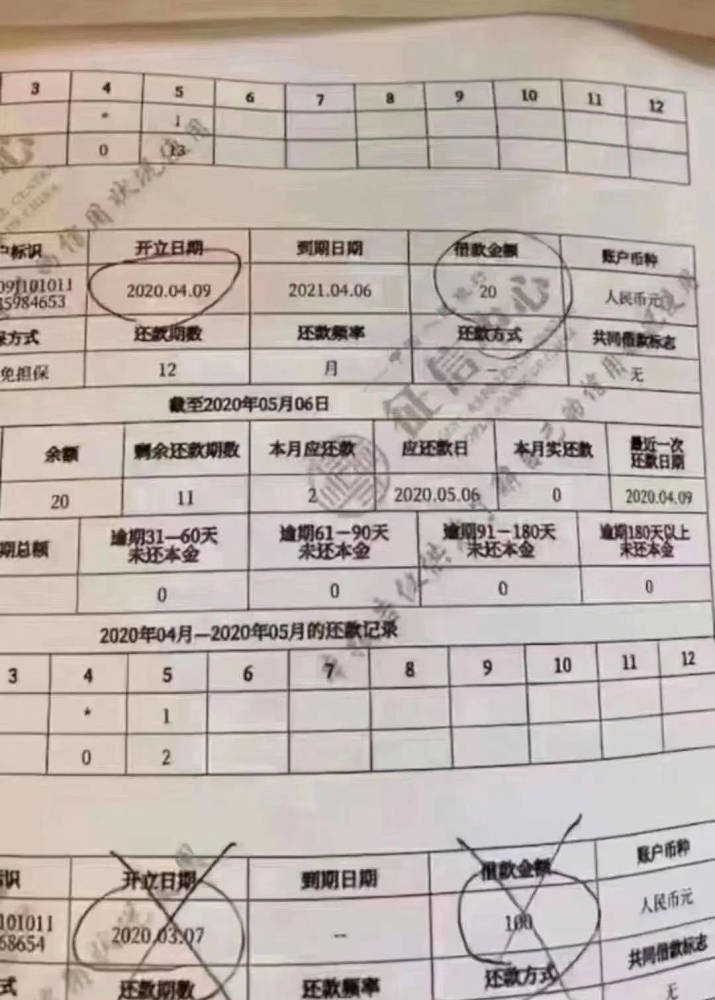 3 4 5 6 7 8 9 10 11 12
* 1
0 13
开立日期 到期日期 借款金额 账户币种
2020.04.09 2021.04.06 20 人民币元
还款期数 还款频率 还款方式 共同借款标志
免担保 12 月 -- 无
截至2020年05月06日
余额 剩余还款期数 本月应还款 应还款日 本月实还款 最近一次
还款日期
20 11 2 2020.05.06 0 2020.04.09
期总额 逾期31—60天 逾期61-90天 逾期91-180天 逾期180天以上
未还本金 未还本金 未还本金 未还本金
0 0 0 0
2020年04月—2020年05月的还款记录
3 4 5 6 7 8 9 10 11 12
* 1
0 2
开立日期 到期日期 借款金额 账户币种
101011
68654 2020.03.07 -- 100 人民币元
还款期数 还款频率 还款方式 共同借款标志
无
征信中心